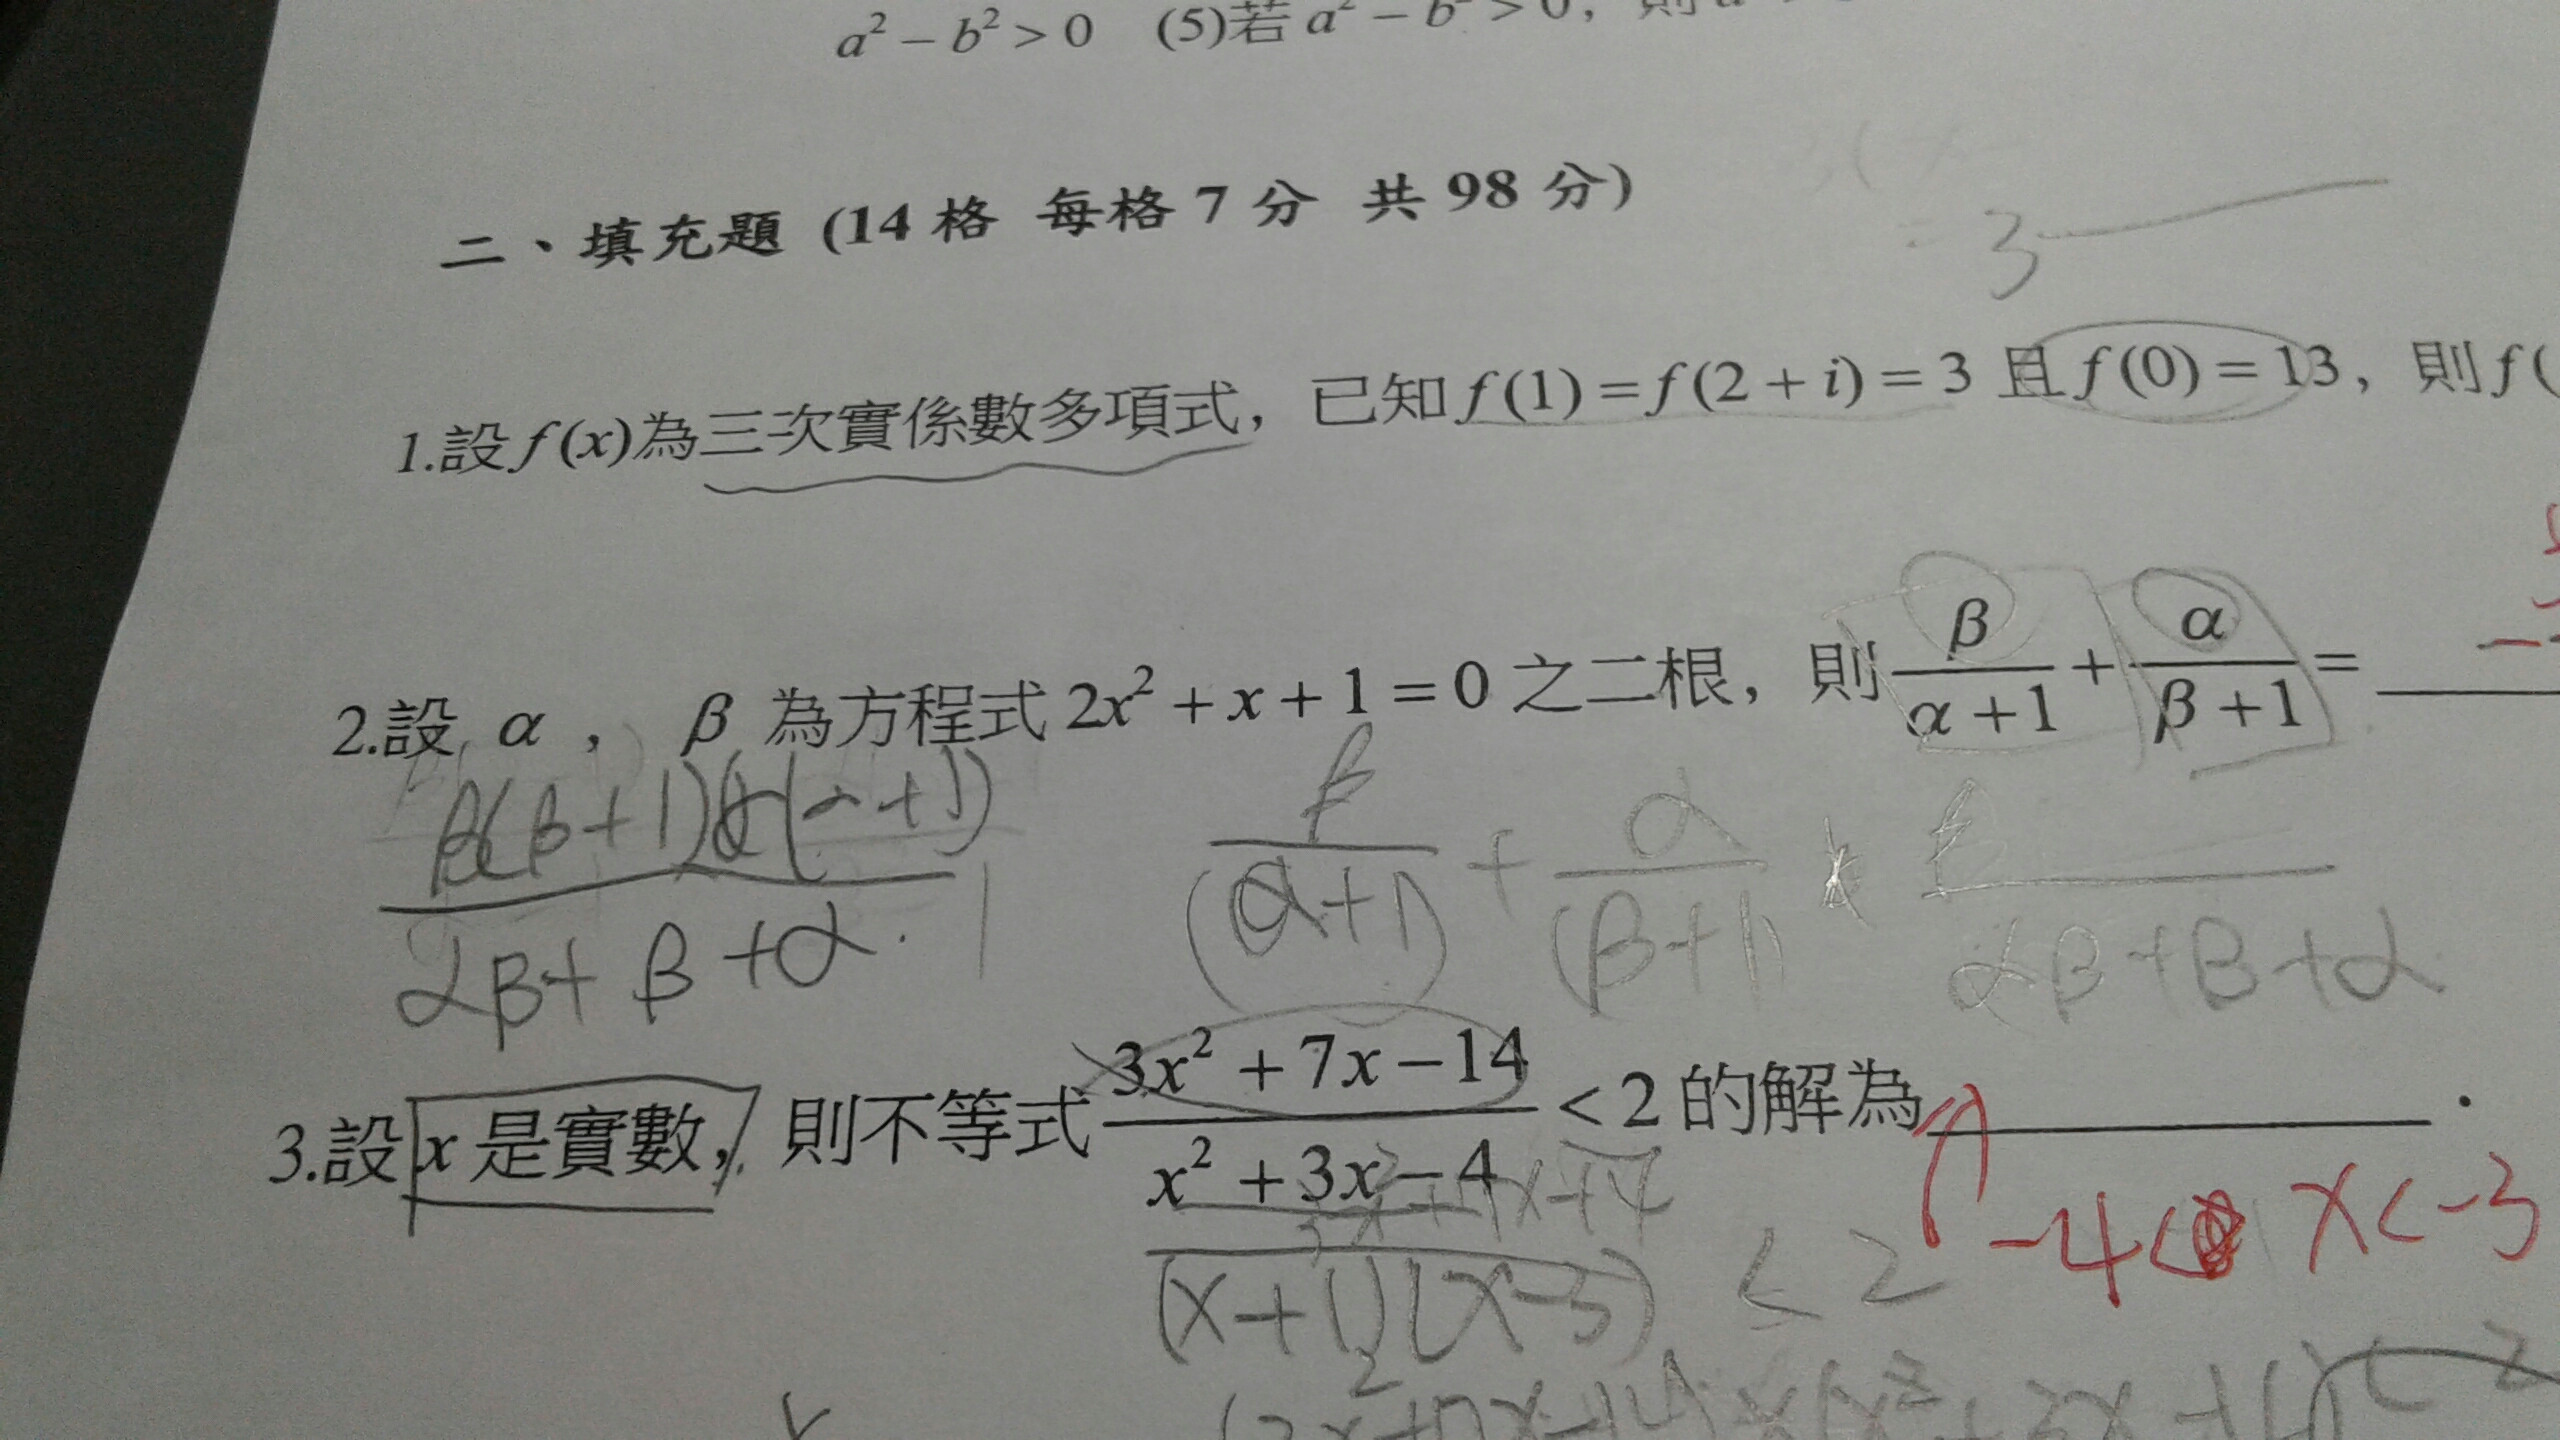 a² − b² > 0 (5)若 a² − b² > 0，則
二、填充題 (14 格 每格 7 分 共 98 分)
= 3
1.設 f (x)為三次實係數多項式，已知 f (1) = f (2 + i) = 3 且 f (0) = 13，則 f (
2.設 α ， β 為方程式 2x² + x + 1 = 0 之二根，則 β/(α + 1) + α/(β + 1) =
β(β+1)α(α+1) / αβ + β + α · 1
β/(α+1) + α/(β+1)
αβ + β + α
3.設 x 是實數，則不等式 (3x² + 7x − 14)/(x² + 3x − 4) < 2 的解為 .
(x+1)(x−3) < 2
−4< x < −3